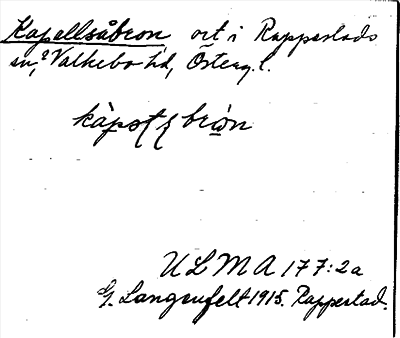 Kapellsåbron ort i Rappestads
sn, Valkebo hd, Österg. l.
ULMA 177:2a
G. Langenfelt 1915. Rappestad.